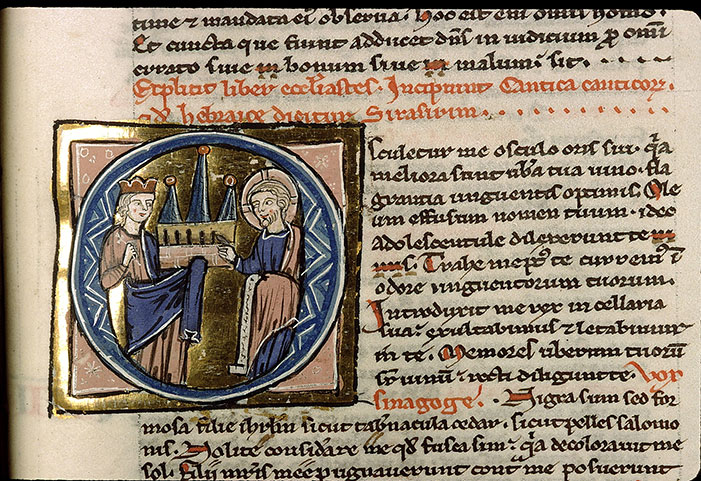 time ⁊ mandata ei᷒ obserua. Hoc est eni᷒ omnis homo.
Et cuncta que fiunt adducet dn̄s in iudicium ꝓ omi
errato siue in bonum siue in malum sit.
Explicit liber eccl'iastes. Incipiunt Cantica canticoꝝ.
qd̄ hebraice dicitur Sirasirim.
Osculetur me osculo oris sui. q̄a
meliora sunt ub̄a tua uino. fla
grantia unguentis optimis. Ole
um effusum nomen tuum. ideo
adolescentule dilexerunt te
Trahe me p᷒ te curremus ī
odore unguentorum tuorum.
Introduxit me rex in cellaria
sua. exultabimus ⁊ letabimur
in te. Memores uberum tuorū
sup̄ uinū. recti diligunt te. Vox
sinagoge. Nigra sum sed for
mosa filie ihrl̄m sicut tab̄nacula cedar. sicut pelles salomo
nis. Nolite considare me qd̄ fusca sim. q̄a decolorauit me
sol. filii mr̄is mee pugnauerunt cont᷒ me posuerunt